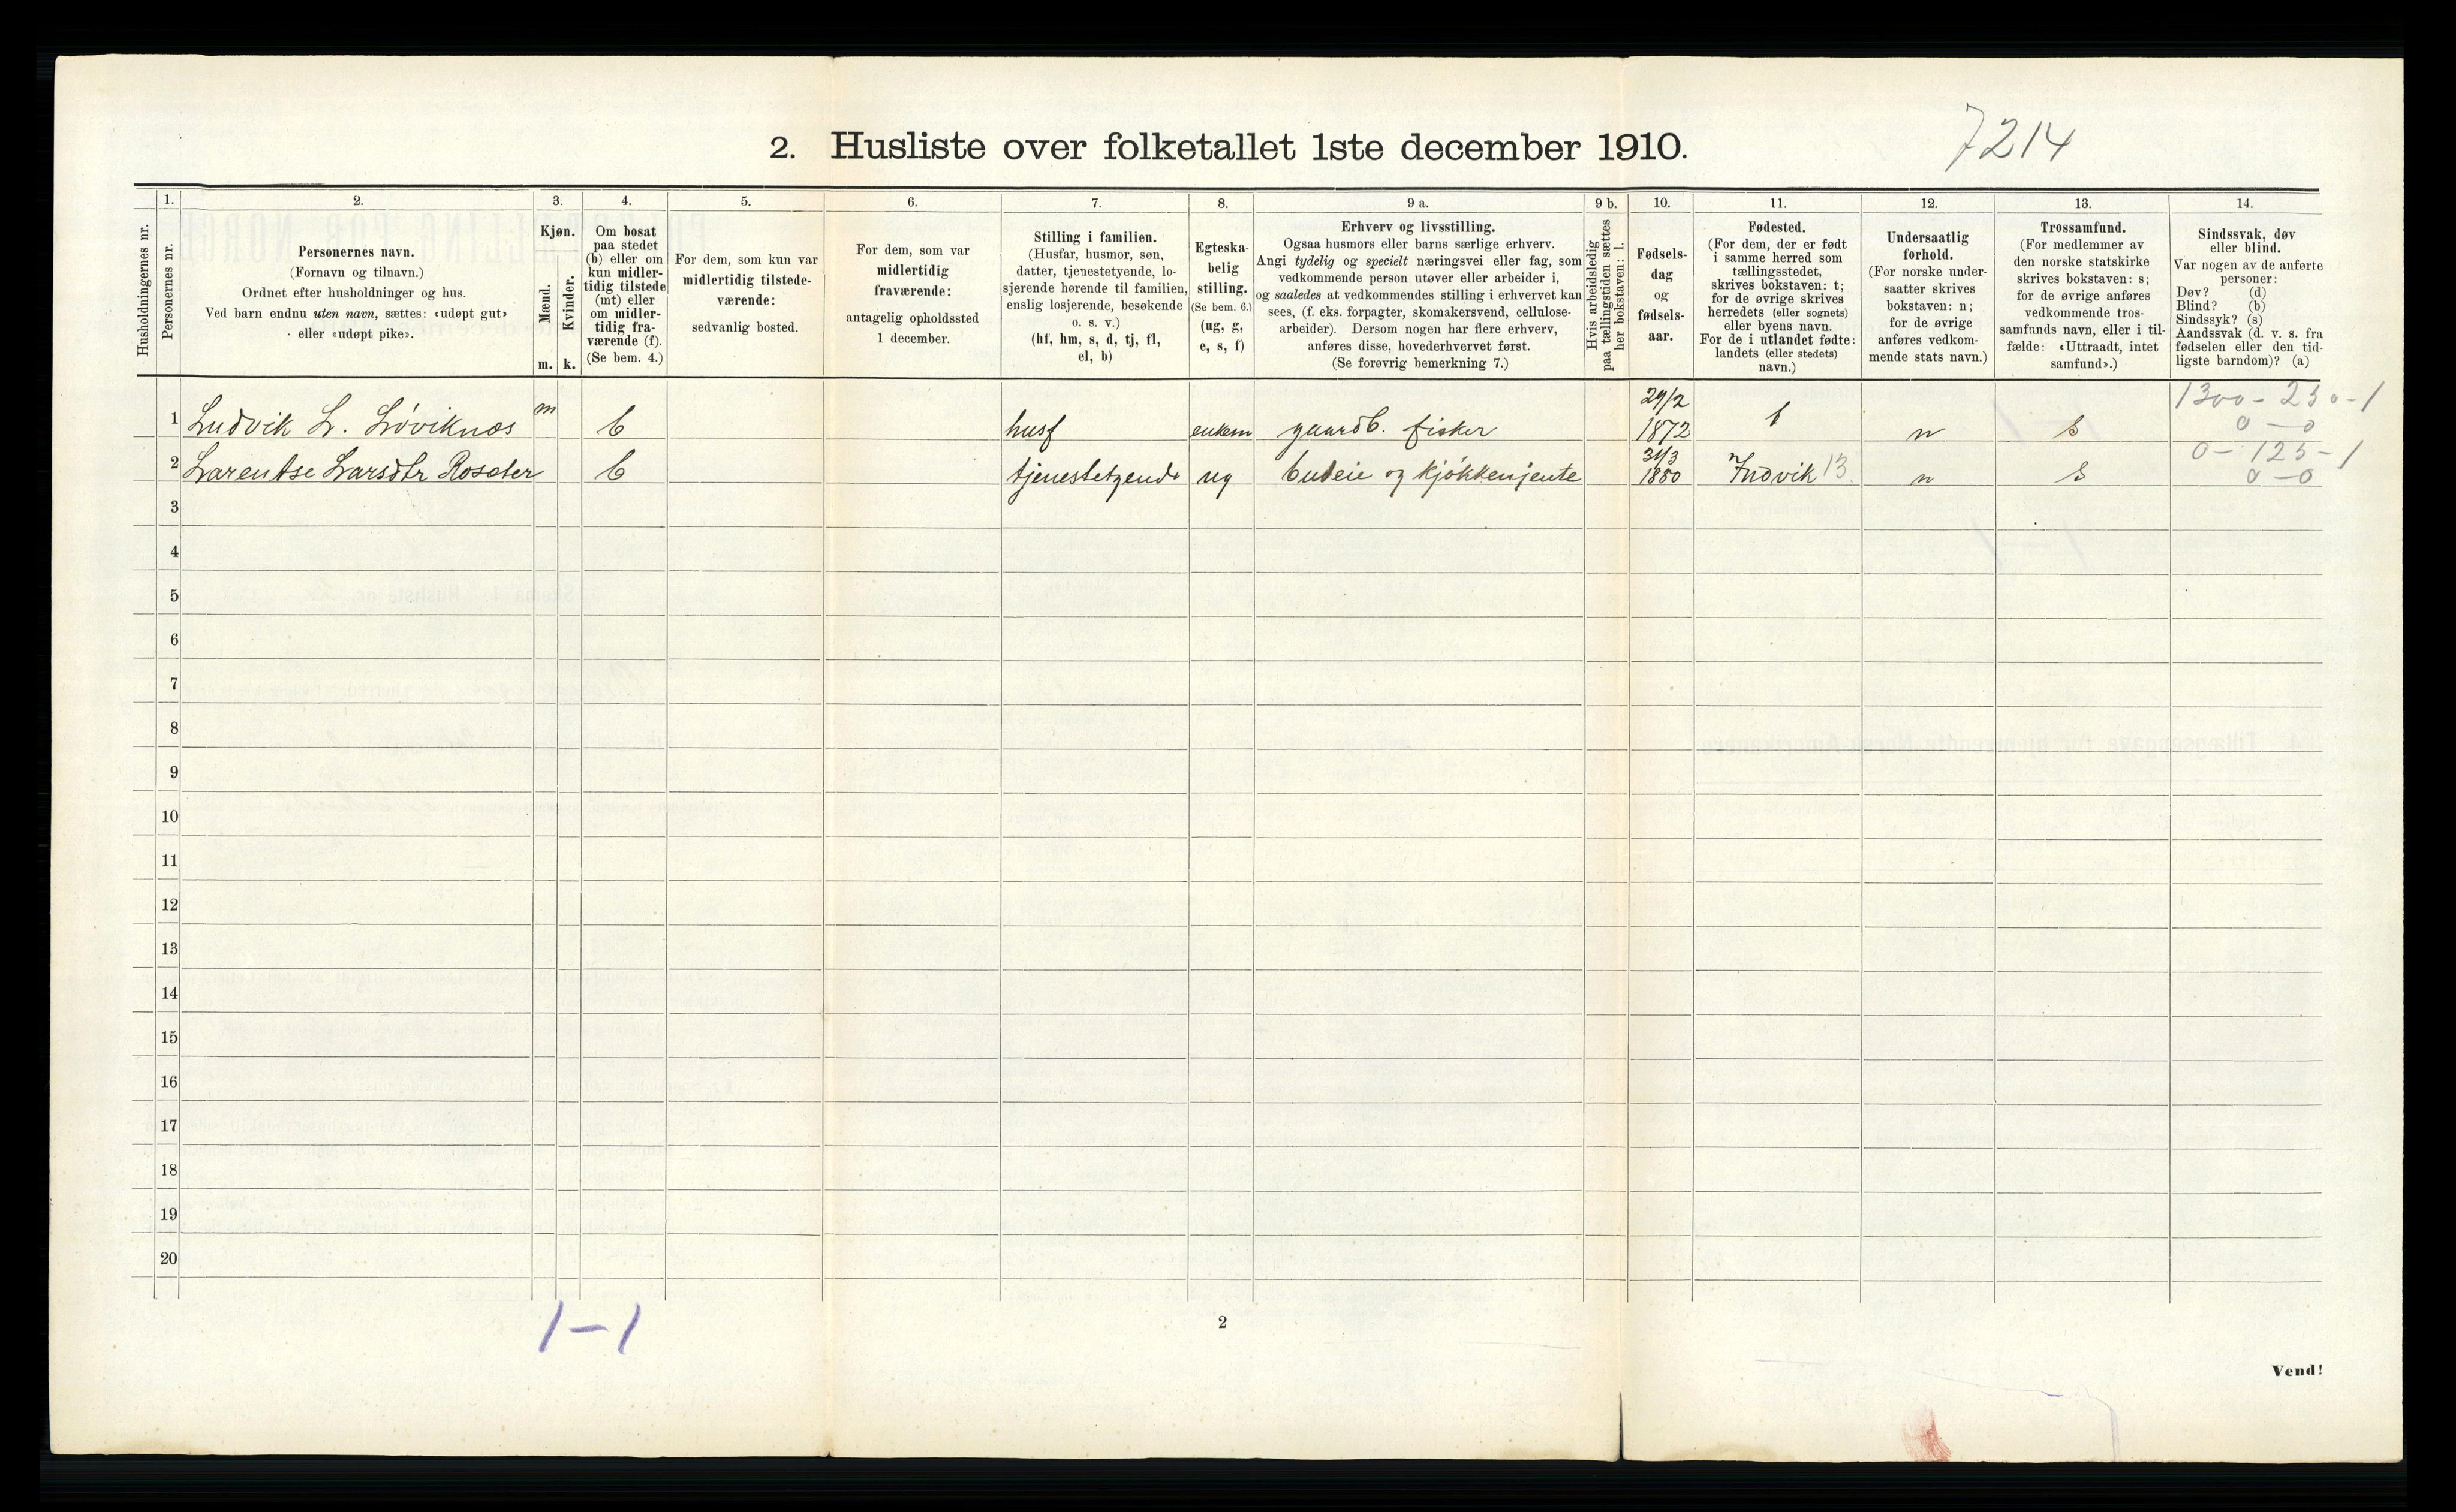 2. Husliste over folketallet 1ste december 1910.
7214
Husholdningernes nr.
1.
Personernes nr.
2.
Personernes navn.
(Fornavn og tilnavn.)
Ordnet efter husholdninger og hus.
Ved barn endnu uten navn, sættes: «udøpt gut»
eller «udøpt pike».
3.
Kjøn.
Mænd.
Kvinder.
m. k.
4.
Om bosat
paa stedet
(b) eller om
kun midler-
tidig tilstede
(mt) eller
om midler-
tidig fra-
værende (f).
(Se bem. 4.)
5.
For dem, som kun var
midlertidig tilstede-
værende:
sedvanlig bosted.
6.
For dem, som var
midlertidig
fraværende:
antagelig opholdssted
1 december.
7.
Stilling i familien.
(Husfar, husmor, søn,
datter, tjenestetyende, lo-
sjerende hørende til familien,
enslig losjerende, besøkende
o. s. v.)
(hf, hm, s, d, tj, fl,
el, b)
8.
Egteska-
belig
stilling.
(Se bem. 6.)
(ug, g,
e, s, f)
9 a.
Erhverv og livsstilling.
Ogsaa husmors eller barns særlige erhverv.
Angi tydelig og specielt næringsvei eller fag, som
vedkommende person utøver eller arbeider i,
og saaledes at vedkommendes stilling i erhvervet kan
sees, (f. eks. forpagter, skomakersvend, cellulose-
arbeider). Dersom nogen har flere erhverv,
anføres disse, hovederhvervet først.
(Se forøvrig bemerkning 7.)
9 b.
Hvis arbeidsledig
paa tællingstiden sættes
her bokstaven: l.
10.
Fødsels-
dag
og
fødsels-
aar.
11.
Fødested.
(For dem, der er født
i samme herred som
tællingsstedet,
skrives bokstaven: t;
for de øvrige skrives
herredets (eller sognets)
eller byens navn.
For de i utlandet fødte:
landets (eller stedets)
navn.)
12.
Undersaatlig
forhold.
(For norske under-
saatter skrives
bokstaven: n;
for de øvrige
anføres vedkom-
mende stats navn.)
13.
Trossamfund.
(For medlemmer av
den norske statskirke
skrives bokstaven: s;
for de øvrige anføres
vedkommende tros-
samfunds navn, eller i til-
fælde: «Uttraadt, intet
samfund».)
14.
Sindssvak, døv
eller blind.
Var nogen av de anførte
personer:
Døv? (d)
Blind? (b)
Sindssyk? (s)
Aandssvak (d. v. s. fra
fødselen eller den tid-
ligste barndom)? (a)
1 Ludvik L. Løviknæs m b husf enkem gaardb. fisker 29/2 1872 t n s 1300-250-1
0-0
2 Larentse Larsdtr Rosæter b tjenestetyende ug budeie og kjøkkenjente 31/3 1880 n Indvik 13. n s 0-125-1
0-0
3
4
5
6
7
8
9
10
11
12
13
14
15
16
17
18
19
20
1-1
2
Vend!